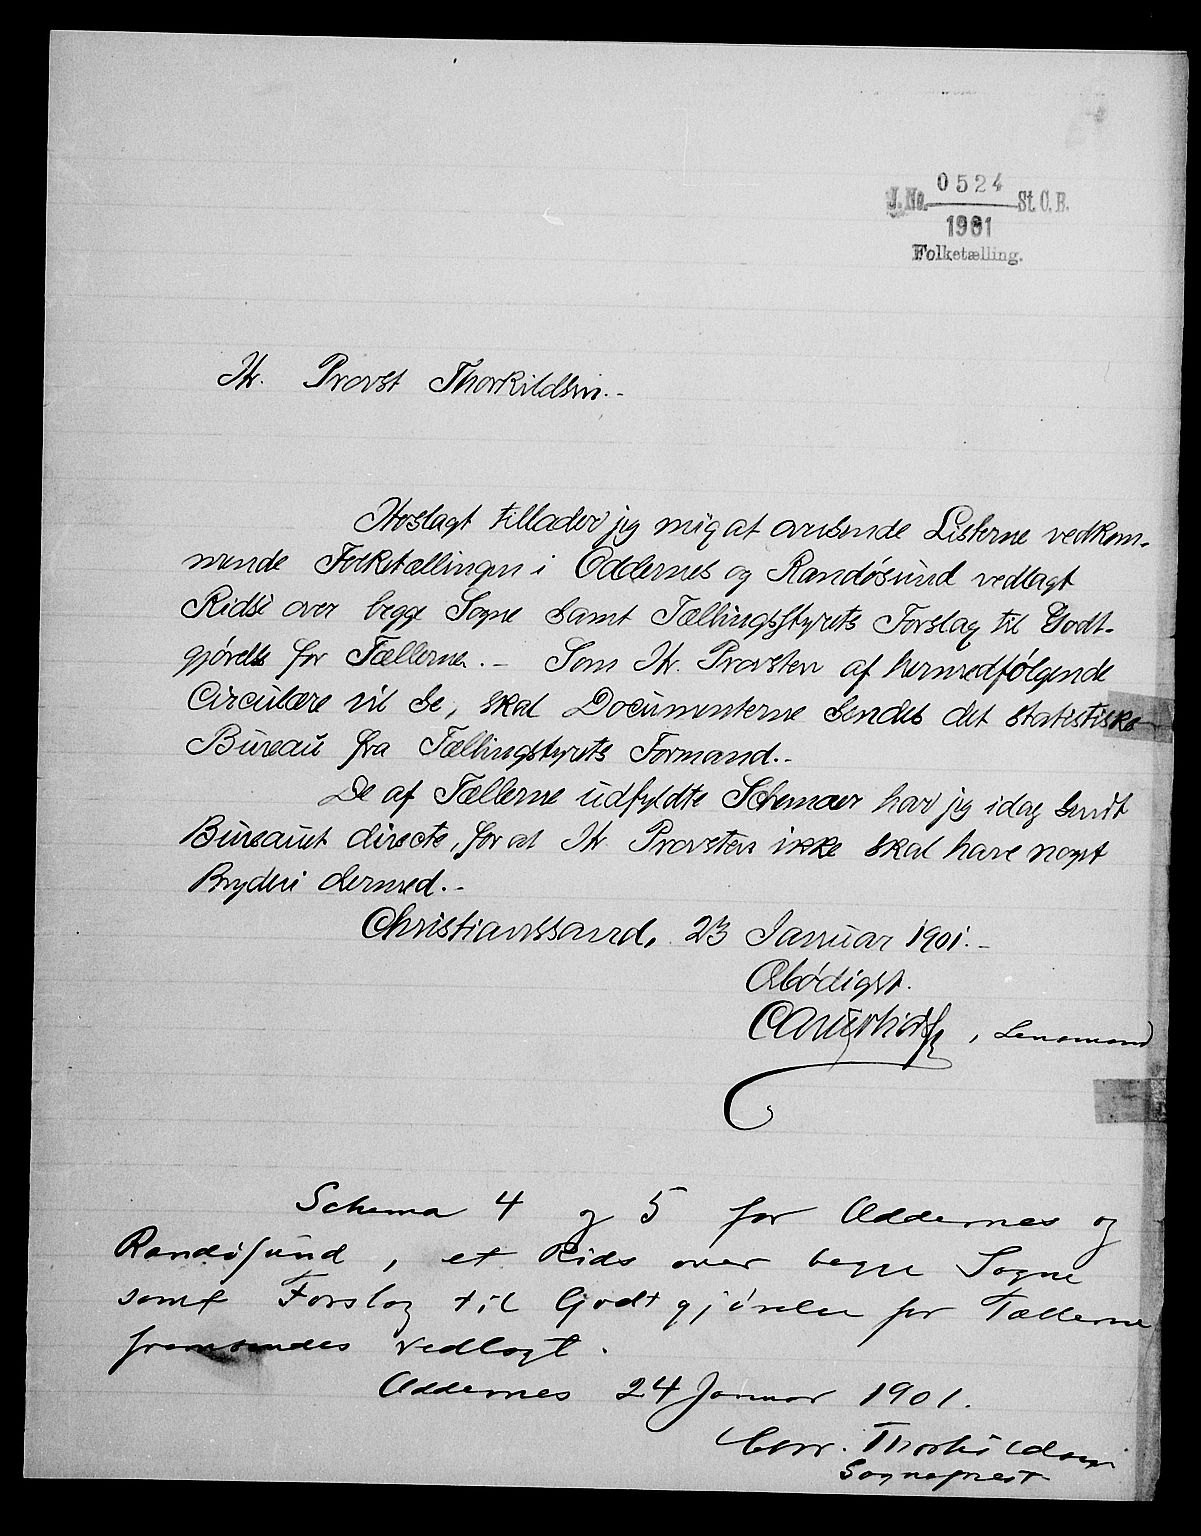 J.No. 0524 St. C. B.
1901
Folketælling.
Hr. Provst Thorkildsen.-
Hoslagt tillader jeg mig at oversende Listerne vedkom-
mende Folketællingen i Oddernes og Randøsund vedlagt
Rids over begge Sogne samt Tællingsstyrets Forslag til Godt-
gjørelse for Tællerne.- Som Hr. Provsten af hermedfølgende
Circulære vil se, skal Documenterne sendes det statistiske
Bureau fra Tællingstyrets Formand.-
De af Tællerne udfyldte Schemaer har jeg idag sendt
Bureauet directe, for at Hr Provsten ikke skal have noget
Bryderi dermed.-
Christianssand, 23 Januar 1901.-
Ærbødigst.
, Lensmand
Schema 4 og 5 for Oddernes og
Randøsund, et Rids over begge Sogne
samt Forslag til Godtgjørelse for Tællerne
fremsendes vedlagt.
Oddernes 24 Januar 1901.
Thorkildsen
Sogneprest